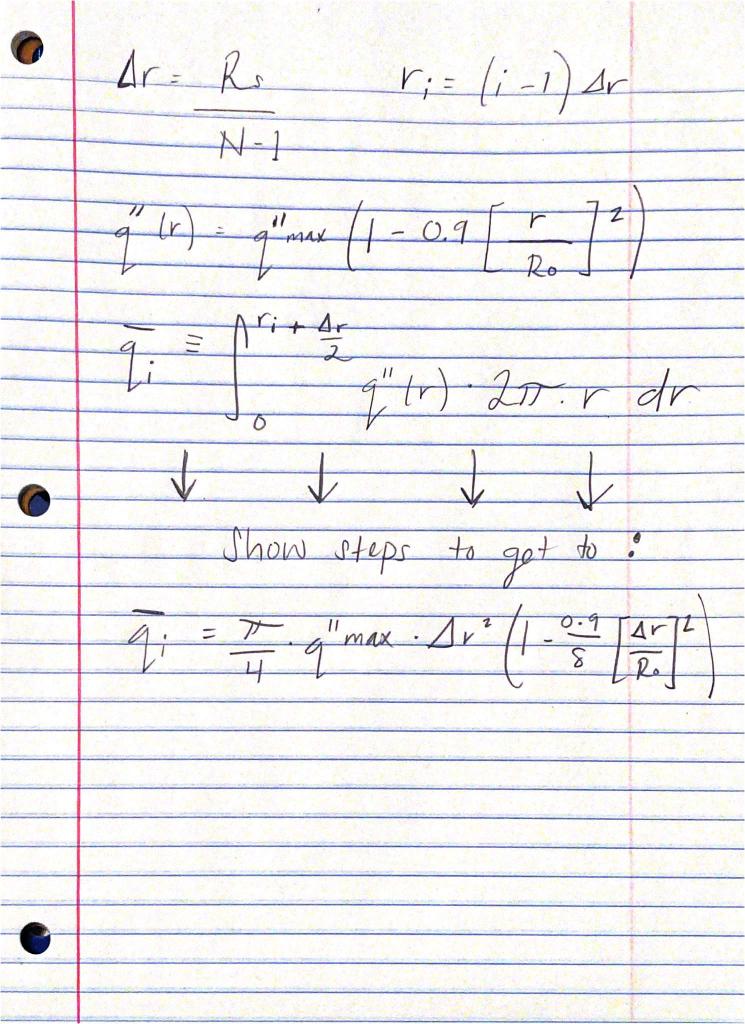 Δr = R₀ / N-1    rᵢ = (i-1) Δr
q″(r) = q″max (1 - 0.9 [r / R₀]²)
q̄ᵢ ≡ ∫₀^(rᵢ + Δr/2) q″(r) · 2π · r dr
↓ ↓ ↓ ↓
Show steps to get to :
q̄ᵢ = π/4 · q″max · Δr² (1 - 0.9/8 [Δr / R₀]²)